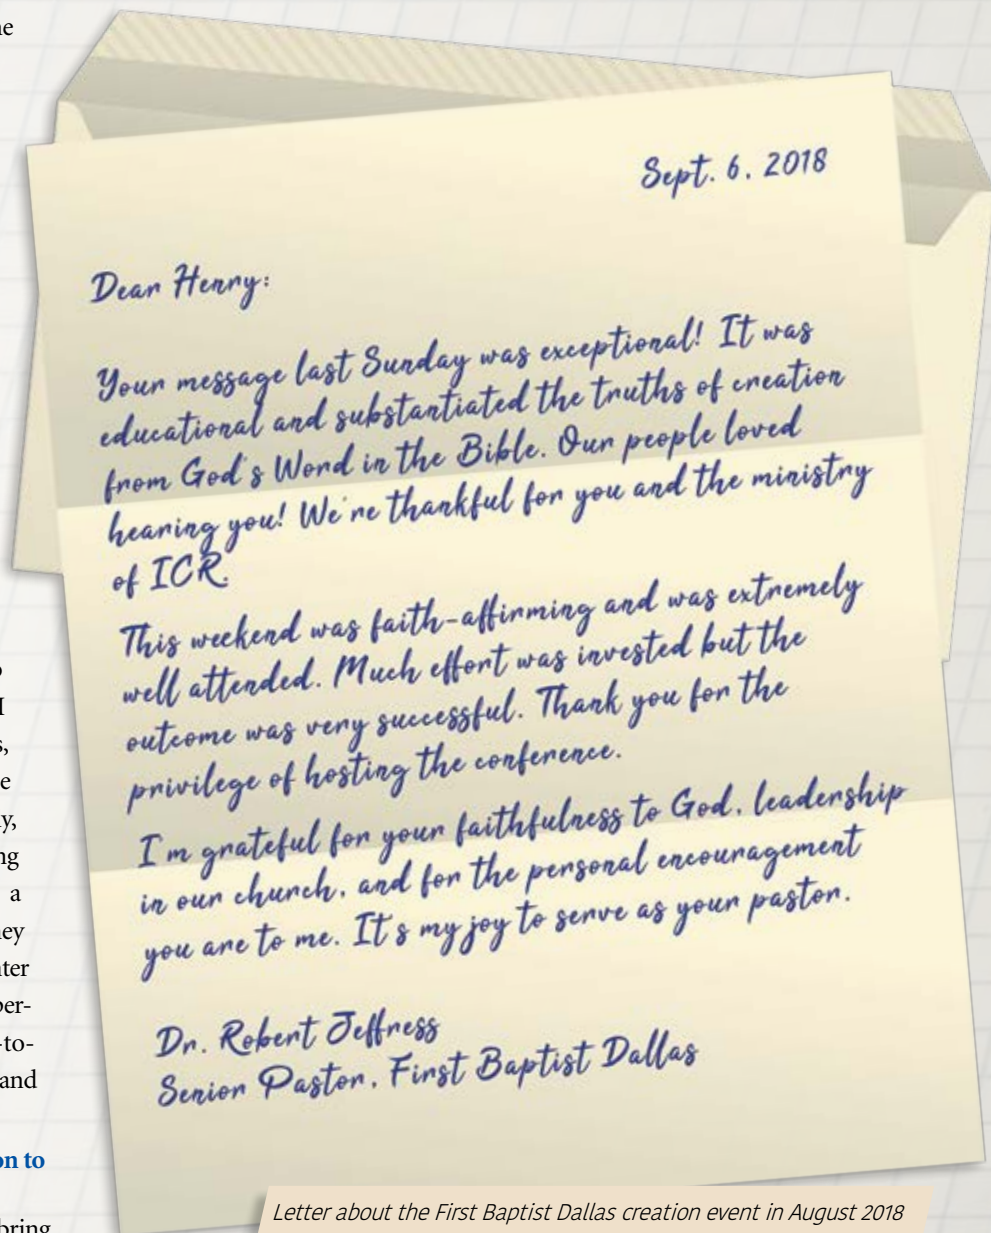 a
-to-
and
to
bring
Sept. 6, 2018
Dear Henry:
Your message last Sunday was exceptional! It was
educational and substantiated the truths of creation
from God's Word in the Bible. Our people loved
hearing you! We're thankful for you and the ministry
of ICR.
This weekend was faith-affirming and was extremely
well attended. Much effort was invested but the
outcome was very successful. Thank you for the
privilege of hosting the conference.
I'm grateful for your faithfulness to God, leadership
in our church, and for the personal encouragement
you are to me. It's my joy to serve as your pastor.
Dr. Robert Jeffress
Senior Pastor, First Baptist Dallas
Letter about the First Baptist Dallas creation event in August 2018